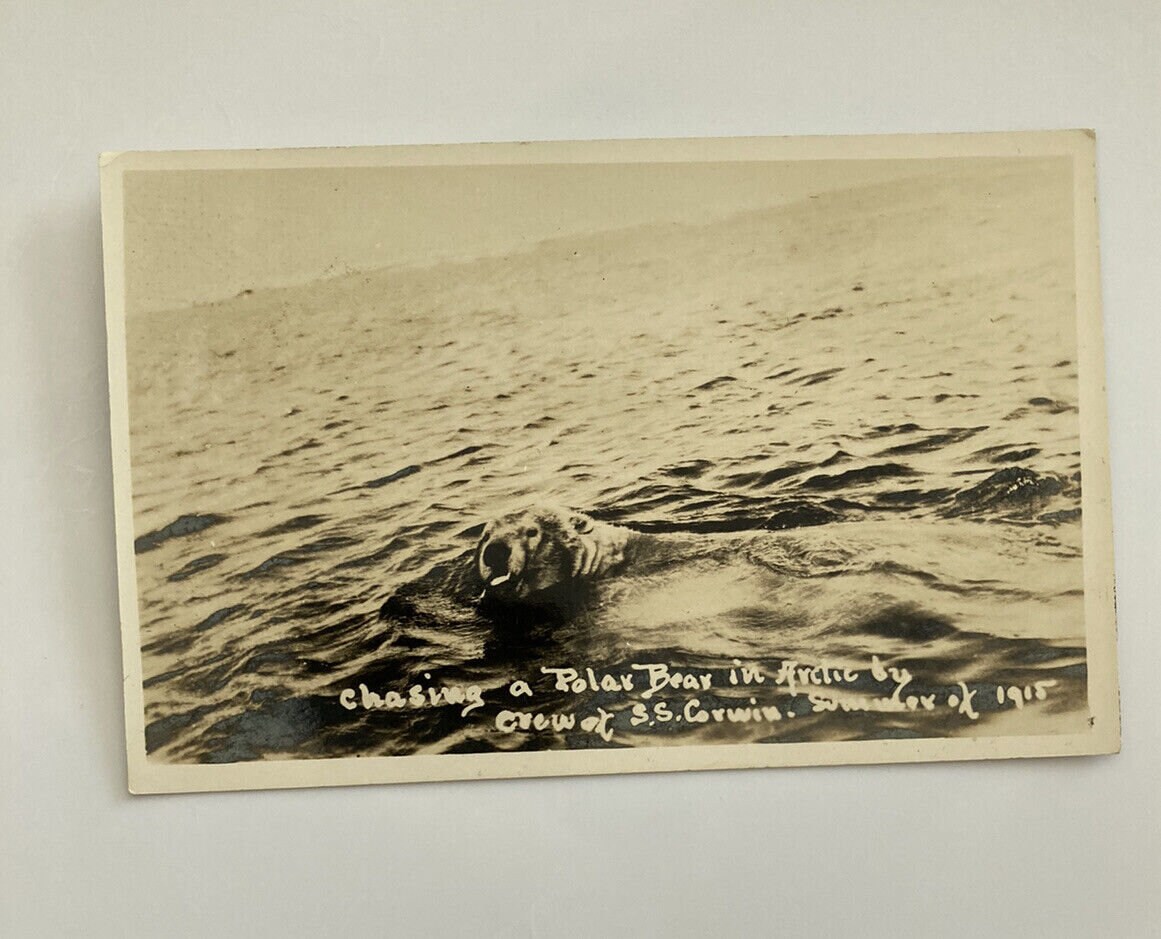 Chasing a Polar Bear in Arctic by
Crew of S.S. Corwin. Summer of 1915